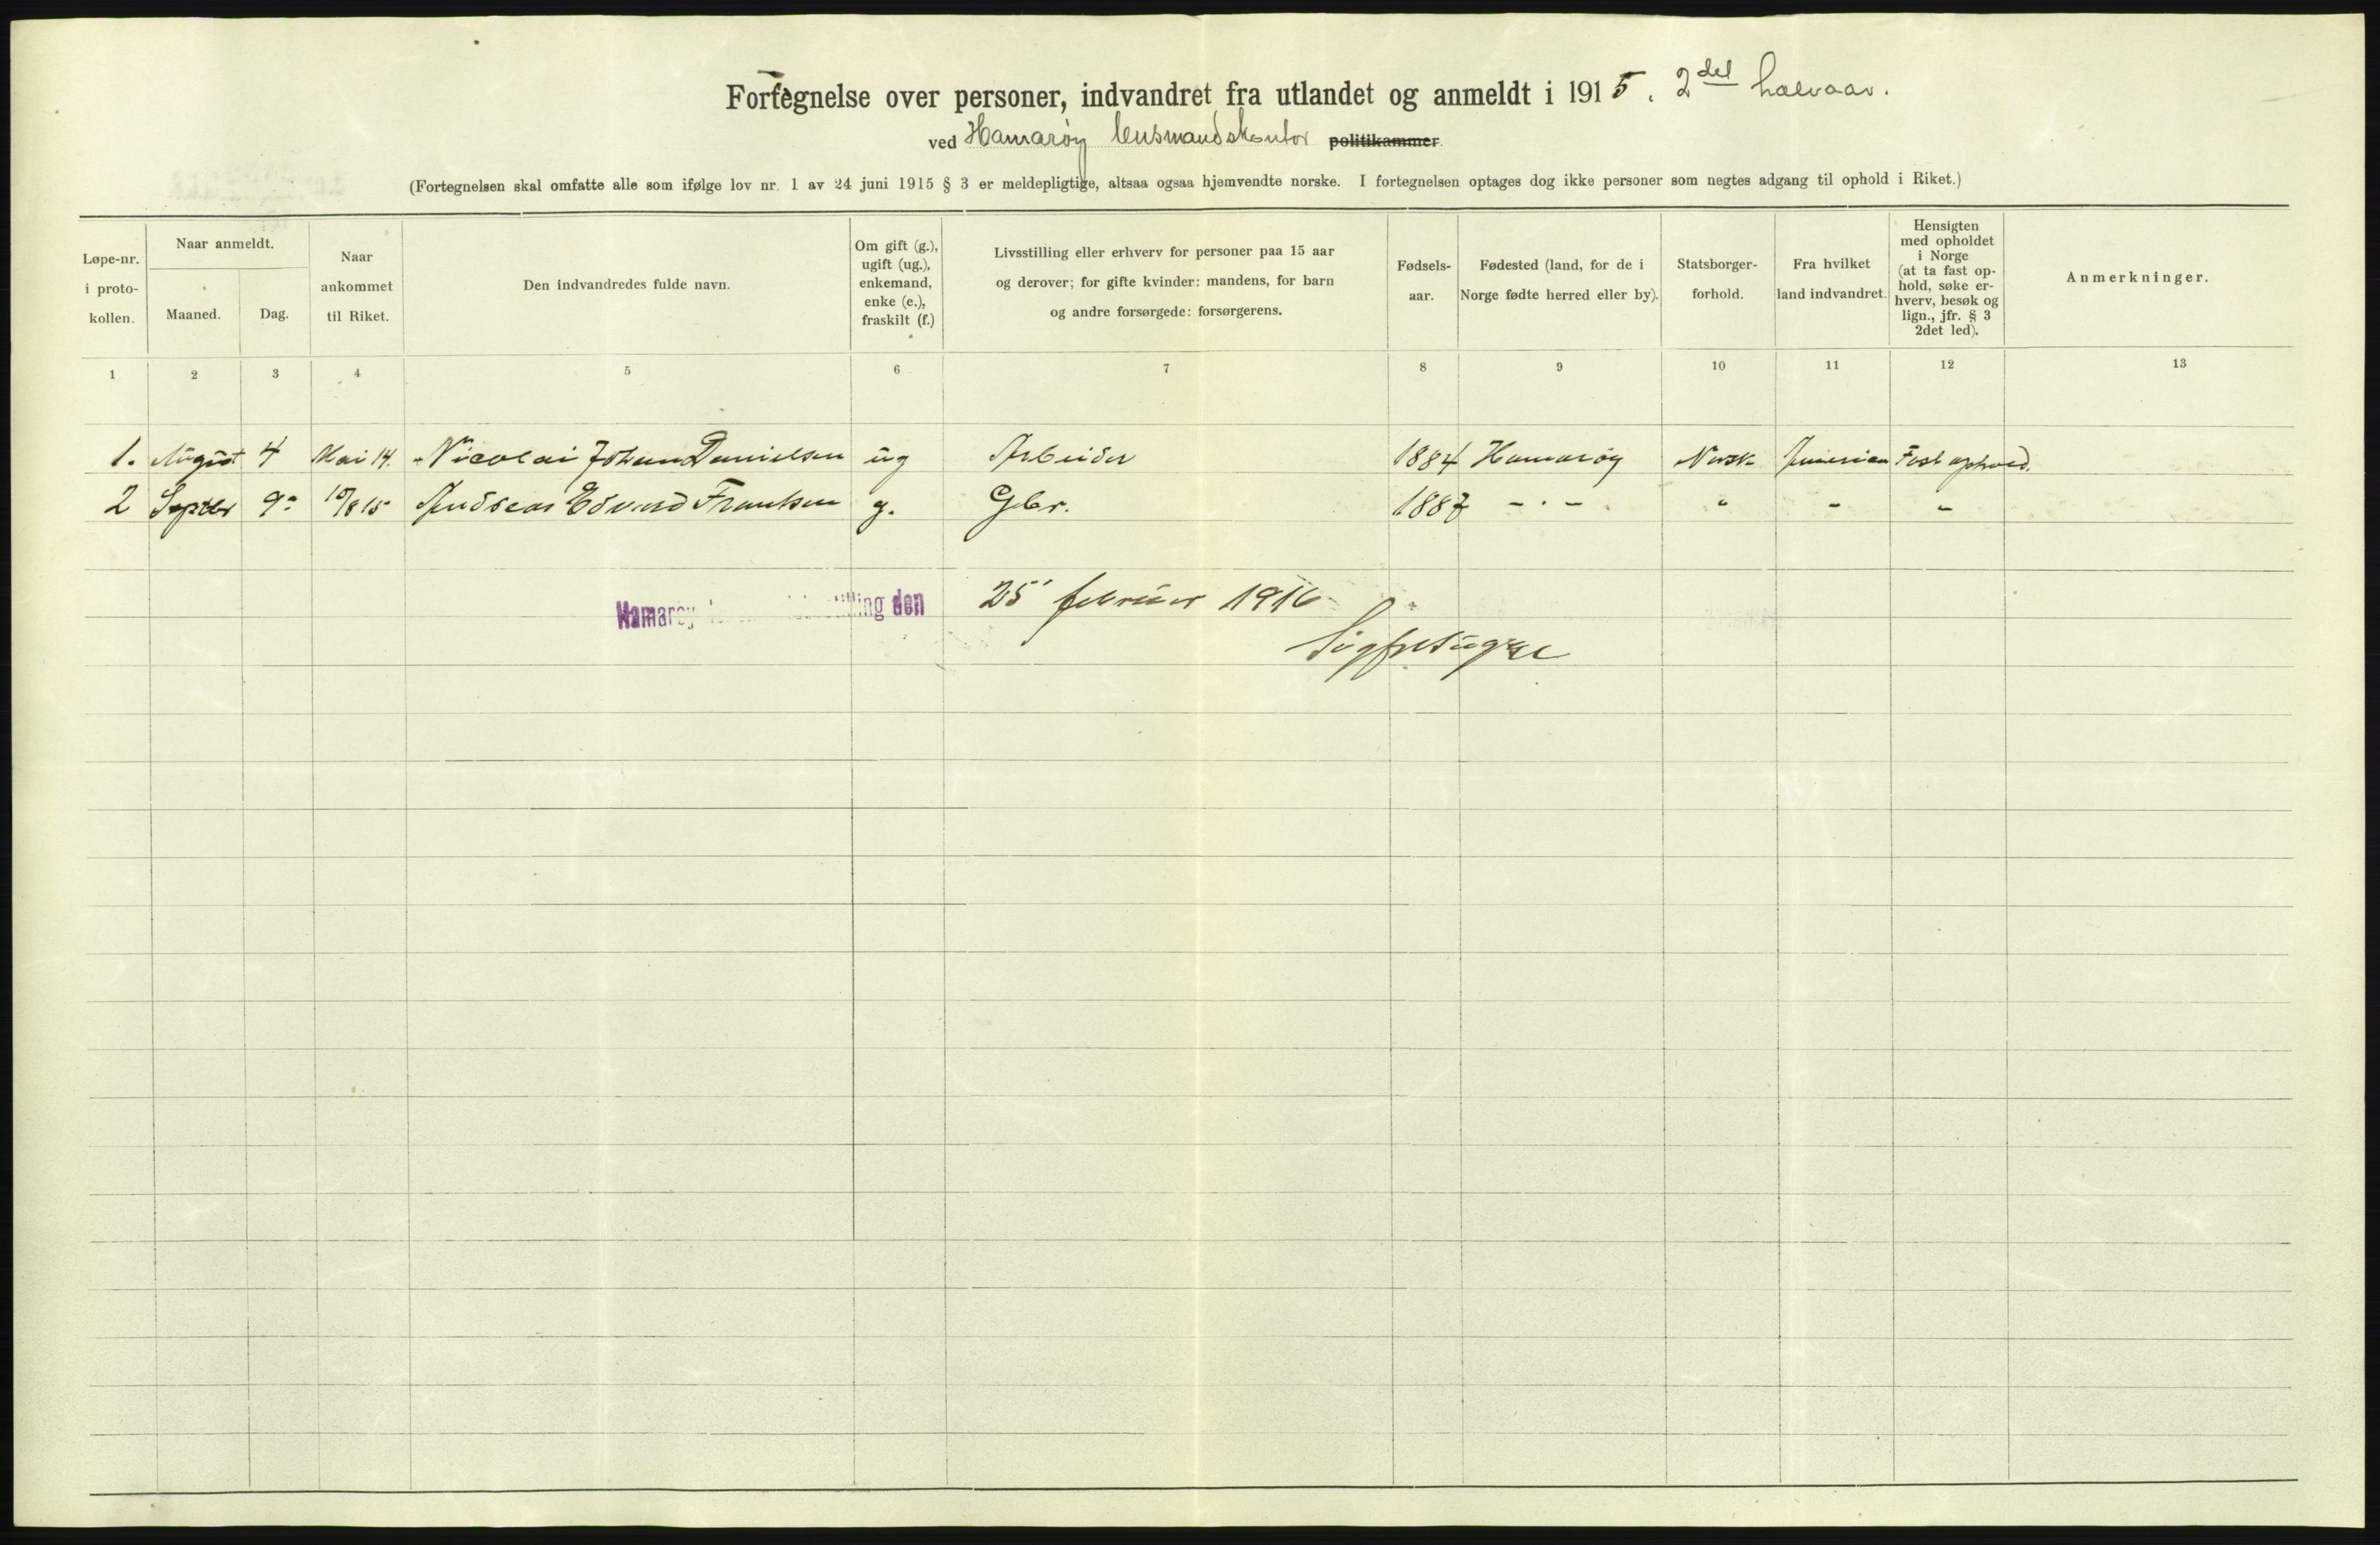 Fortegnelse over personer, indvandret fra utlandet og anmeldt i 1915. 2del halvaar.
ved Hamarøy lensmandskontor politikammer
(Fortegnelsen skal omfatte alle som ifølge lov nr. 1 av 24 juni 1915 § 3 er meldepligtige, altsaa ogsaa hjemvendte norske. I fortegnelsen optages dog ikke personer som negtes adgang til ophold i Riket.)
Løpe-nr.
i proto-
kollen.
Naar anmeldt.
Maaned.
Dag.
Naar
ankommet
til Riket.
Den indvandredes fulde navn.
Om gift (g.),
ugift (ug.),
enkemand,
enke (e.),
fraskilt (f.)
Livsstilling eller erhverv for personer paa 15 aar
og derover; for gifte kvinder: mandens, for barn
og andre forsørgede: forsørgerens.
Fødsels-
aar.
Fødested (land, for de i
Norge fødte herred eller by).
Statsborger-
forhold.
Fra hvilket
land indvandret.
Hensigten
med opholdet
i Norge
(at ta fast op-
hold, søke er-
hverv, besøk og
lign., jfr. § 3
2det led).
Anmerkninger.
1 2 3 4 5 6 7 8 9 10 11 12 13
1. August 4 Mai 14. Nicolai Johan Danielsen ug Arbeider 1884 Hamarøy Norsk Amerika Fast ophold.
2 Septbr 9 10/8 15 Andreas Edvard Frantsen g. Gbr. 1887 - . - " - -
Hamarøy den 25 februar 1916